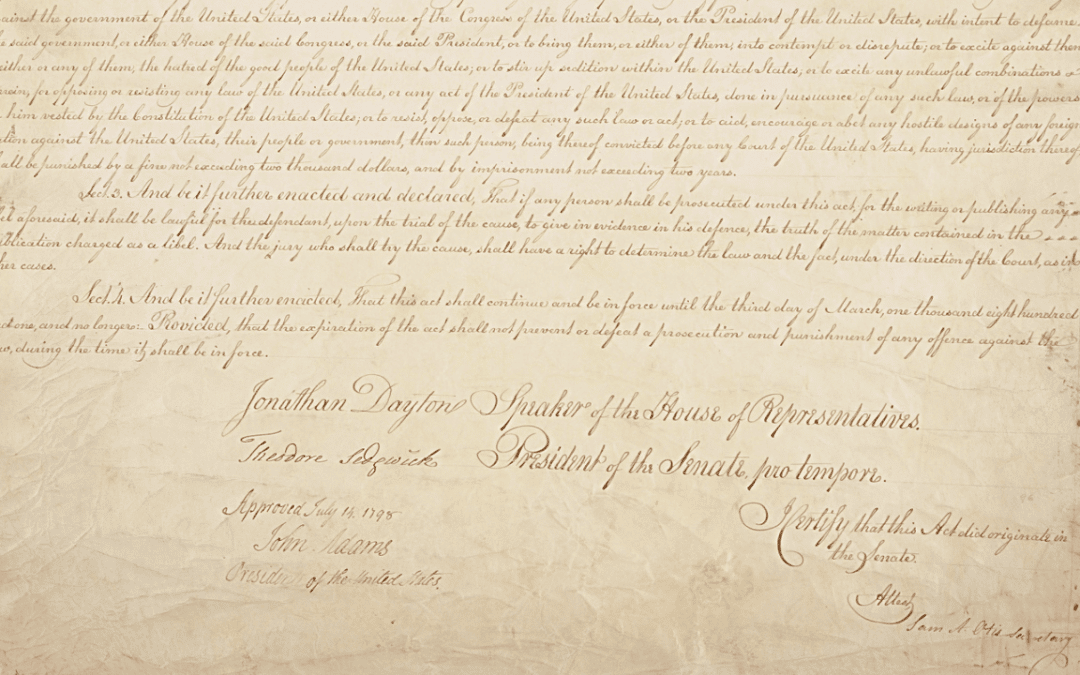 ainst the government of the United States, or either House of the Congress of the United States, or the President of the United States, with intent to defame
e said government, or either House of the said Congress, or the said President, or to bring them, or either of them, into contempt or disrepute; or to excite against them
either or any of them, the hatred of the good people of the United States; or to stir up sedition within the United States, or to excite any unlawful combinations
rein, for opposing or resisting any law of the United States, or any act of the President of the United States, done in pursuance of any such law, or of the powers
him vested by the Constitution of the United States; or to resist, oppose, or defeat any such law or act; or to aid, encourage or abet any hostile designs of any foreign
ation against the United States, their people or government, then such person, being thereof convicted before any Court of the United States, having jurisdiction thereof
all be punished by a fine not exceeding two thousand dollars, and by imprisonment not exceeding two years.
Sect. 3. And be it further enacted and declared, That if any person shall be prosecuted under this act, for the writing or publishing any
el aforesaid, it shall be lawful for the defendant, upon the trial of the cause, to give in evidence in his defence, the truth of the matter contained in the
ublication charged as a libel. And the jury who shall try the cause, shall have a right to determine the law and the fact, under the direction of the Court, as in
her cases.
Sect. 4. And be it further enacted, That this act shall continue and be in force until the third day of March, one thousand eight hundred
d one, and no longer: Provided, that the expiration of the act shall not prevent or defeat a prosecution and punishment of any offence against the
w, during the time it shall be in force.
Jonathan Dayton Speaker of the House of Representatives.
Theodore Sedgwick President of the Senate, pro tempore.
Approved July 14. 1798
John Adams
President of the United States.
I Certify that this Act did originate in
the Senate.
Attest,
Sam A. Otis Secretary